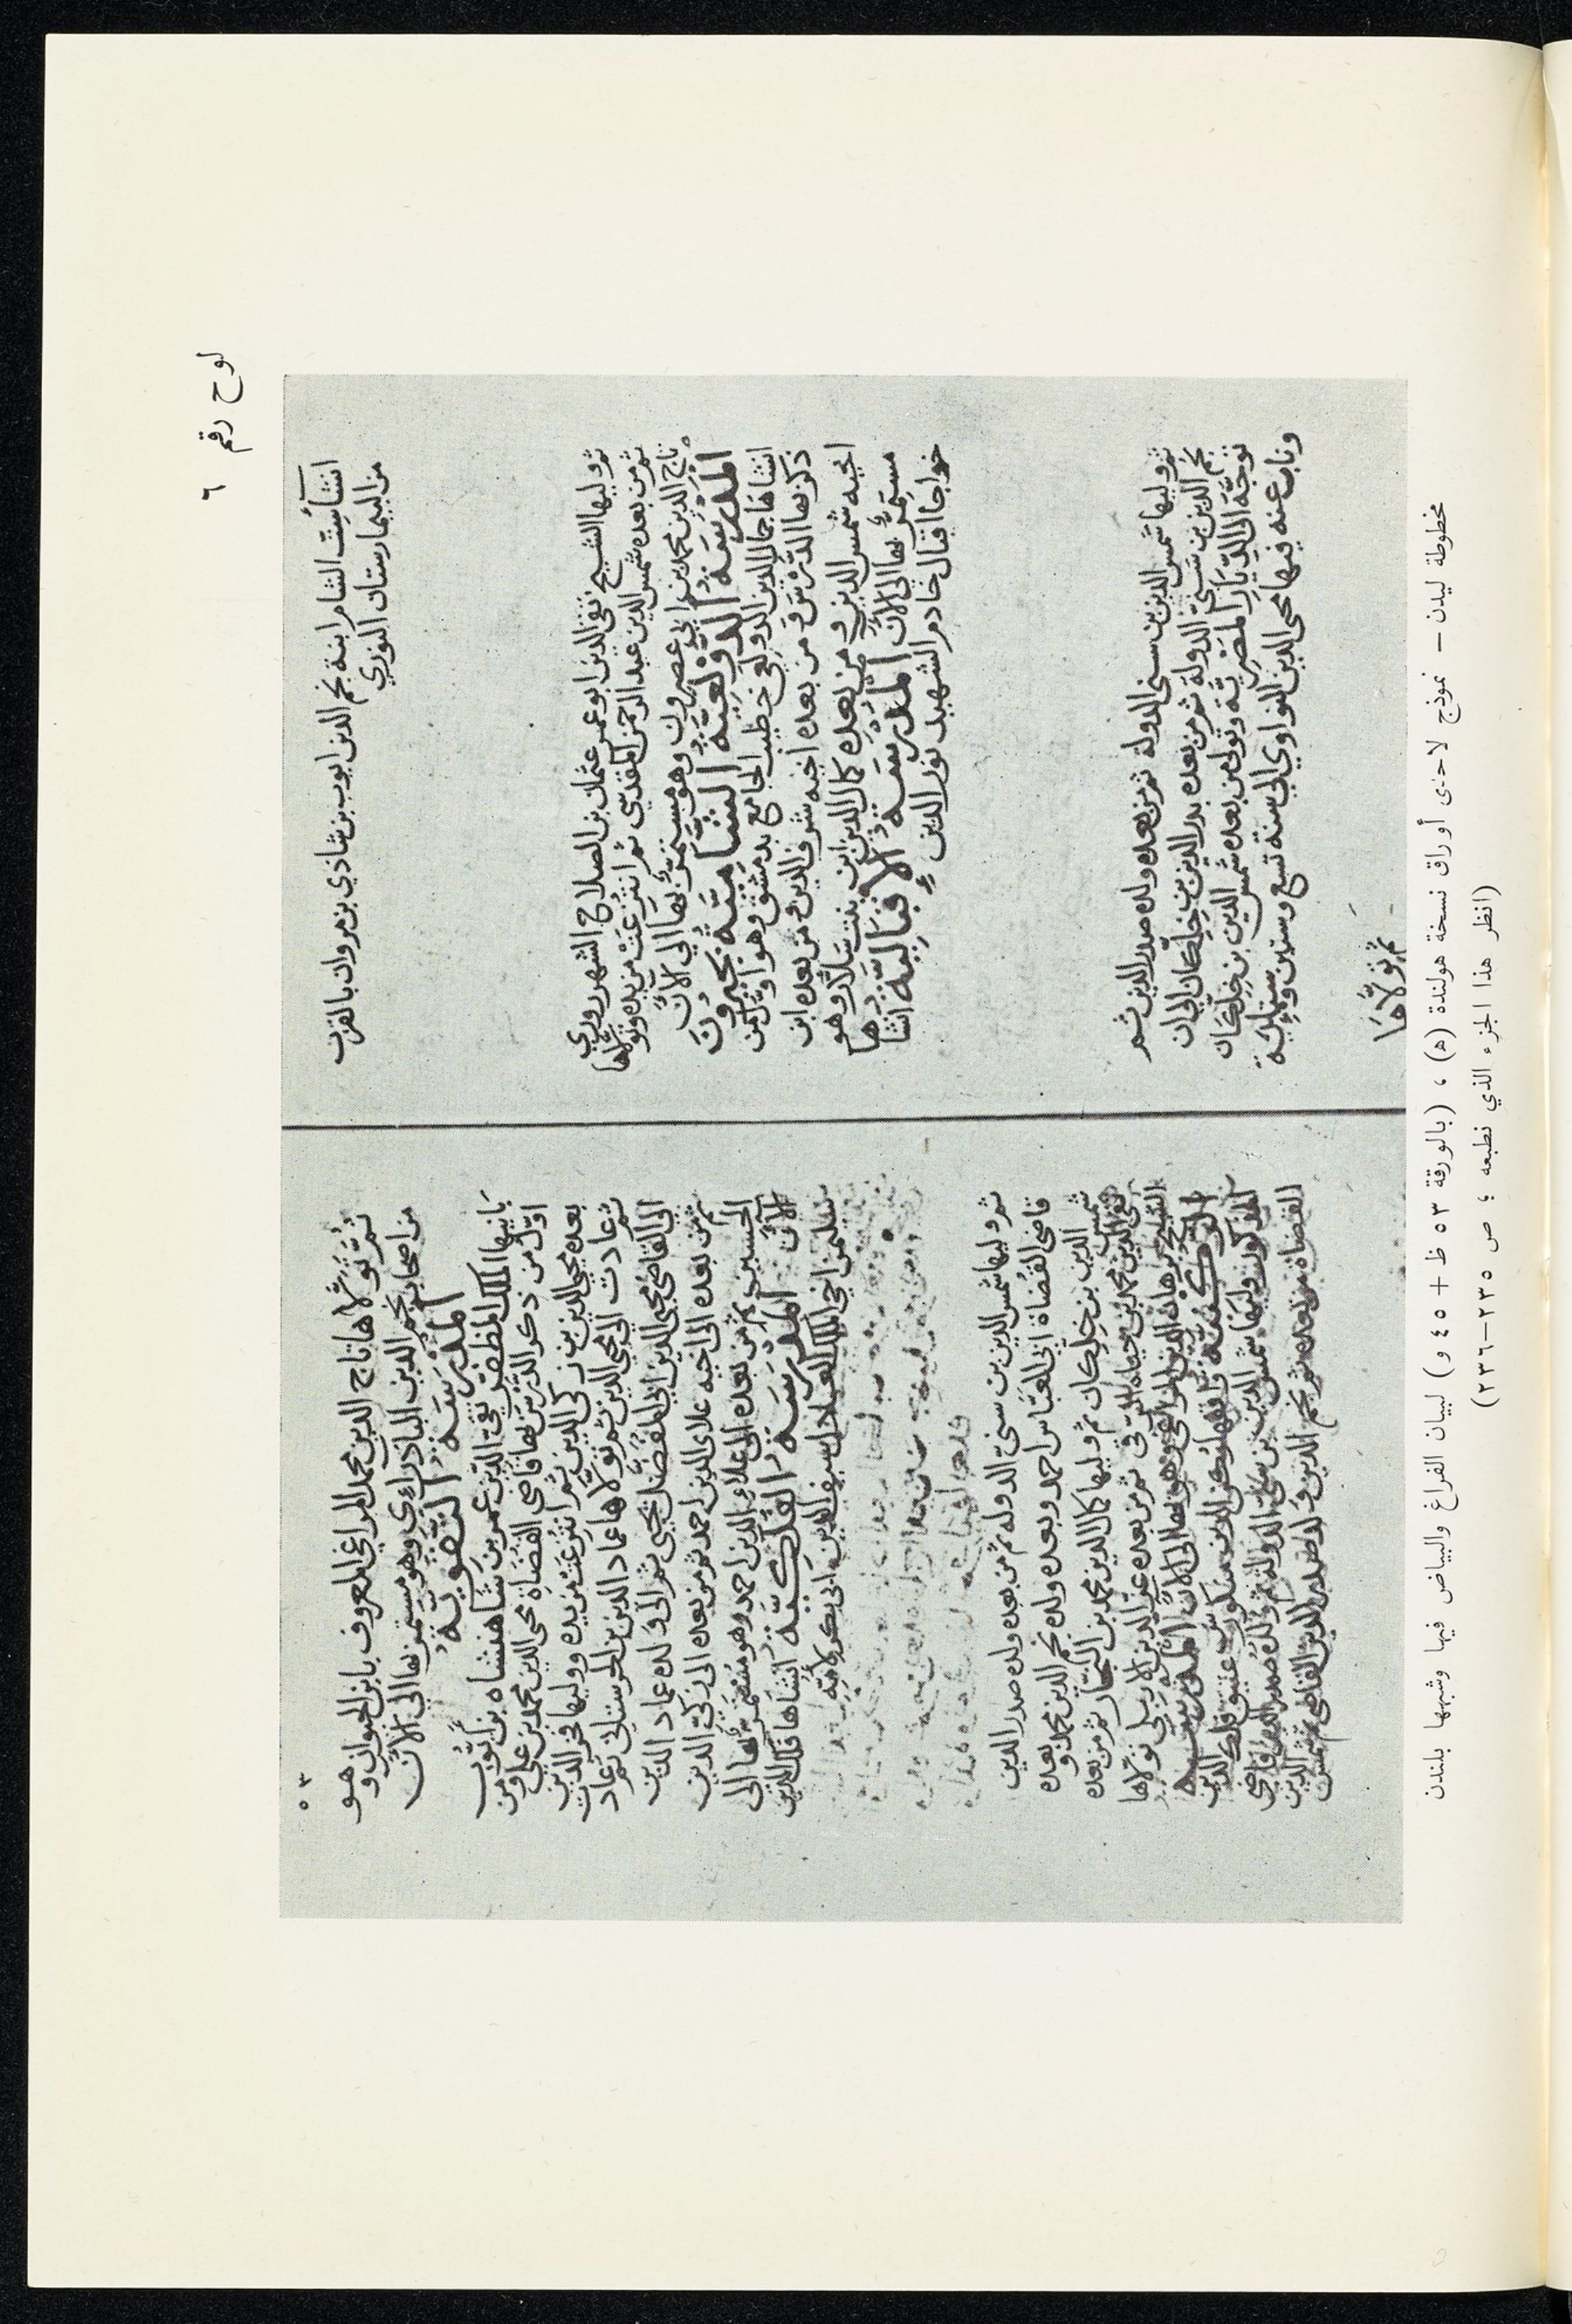 لوح رقم ٦
انشأت ست الشام ابنة نجم الدين ايوب بن شاذي بن مروان بالقرب
من البيمارستان النوري
ثم وليها الشيخ تقي الدين ابو عمر عثمان بن الصلاح الشهرزوري
ثم من بعده شمس الدين عبد الرحمن المقدسي ثم انتزعت من يده وتولاها
تاج الدين محمد بن ابي عصرون وهو مستمر بها الى الآن
المدرسة الدولعية الشامية بجيرون
انشاها جمال الدين الدولعي خطيب الجامع بدمشق وهو اول من
ذكر بها الدرس ومن بعده اخيه شرف الدين ومن بعده ابن
اخيه شمس الدين ومن بعده كمال الدين ابن بنت سلار وهو
مستمر بها الى الآن المدرسة الاقبالية انشاها
خواجا اقبال خادم الشهيد نور الدين
ثم وليها شمس الدين بن سني الدولة ثم من بعده ولده صدر الدين ثم
نجم الدين بن سني الدولة ثم من بعده بدر الدين بن خلكان الى ان
توجه الى الديار المصرية وتولى من بعده شمس الدين بن خلكان
وناب عنه فيها محي الدين النواوي الى سنة تسع وستين وستماية
ثم تولاها
٥٣
ثم تولاها تاج الدين محمد المراغي المعروف بابن الجواب وهو
من اصحاب نجم الدين الباذراءي وهو مستمر بها الى الآن
المدرسة التقوية
بانيها الملك المظفر تقي الدين عمر بن شاهنشاه بن ايوب
اول من ذكر الدرس بها قاضي القضاة محي الدين محمد بن علي ومن
بعده محي الدين بن زكي الدين ثم انتزعت من يده ووليها فخر الدين
ثم عادت الى محي الدين ثم تولاها عماد الدين بن الحرستاني ثم عاد
الى القاضي محي الدين ابي المفضل يحيى ثم الى ولده عماد الدين
ثم من بعده الى اخيه علاي الدين احمد ثم من بعده الى زكي الدين
الحسين ثم من بعده الى علاء الدين احمد وهو مستمر بها الى
الآن المدرسة الفلكية انشاها فلك الدين
سليمن اخي الملك العادل سيف الدين ابي بكر لامه
ثم وليها شمس الدين بن سني الدولة ثم من بعده ولده صدر الدين
قاضي القضاة ابي العباس احمد وبعده ولده نجم الدين محمد وبعده
شمس الدين بن خلكان ثم وليها كمال الدين محمد بن النجار ثم من بعده
تقي الدين محمد بن حياه الرقي ثم من بعده عز الدين الاربلي تولاها
الشيخ برهان الدين المراغي وهو بها الى الآن المدرسة
الركنية واقفها ركن الدين منكورس عتيق فلك الدين
المذكور وليها شمس الدين بن سني الدولة ثم ولده صدر الدين قاضي
القضاة من بعده ثم نجم الدين ولد صدر الدين القاضي ثم شمس الدين
مخطوطة ليدن – نموذج لاحدى أوراق نسخة هولندة (ه) ، (بالورقة ٥٣ ظ + ٥٤ و) لبيان الفراغ والبياض فيها وشبهها بلندن
(انظر هذا الجزء الذي نطبعه ؛ ص ٢٣٥–٢٣٦)